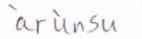 àrùnsu